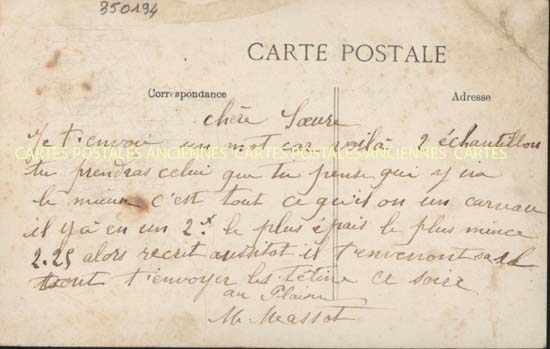 350194
CARTE POSTALE
Correspondance
Adresse
chère Sœure
Je t'envoi un mot car voilà 2 échantillon
CARTES POSTALES ANCIENNES CARTES POSTALES ANCIENNES CARTES POSTALES ANCIENNES
tu prendras celui que tu pense qui y va
le mieux c'est tout ce qu'il on un carreau
il y à en un 2.x le plus épais le plus mince
2.25 alors recrit aussitot il t'enveront
t'envoyer les tétine ce soire
au Plaisir
M Massot